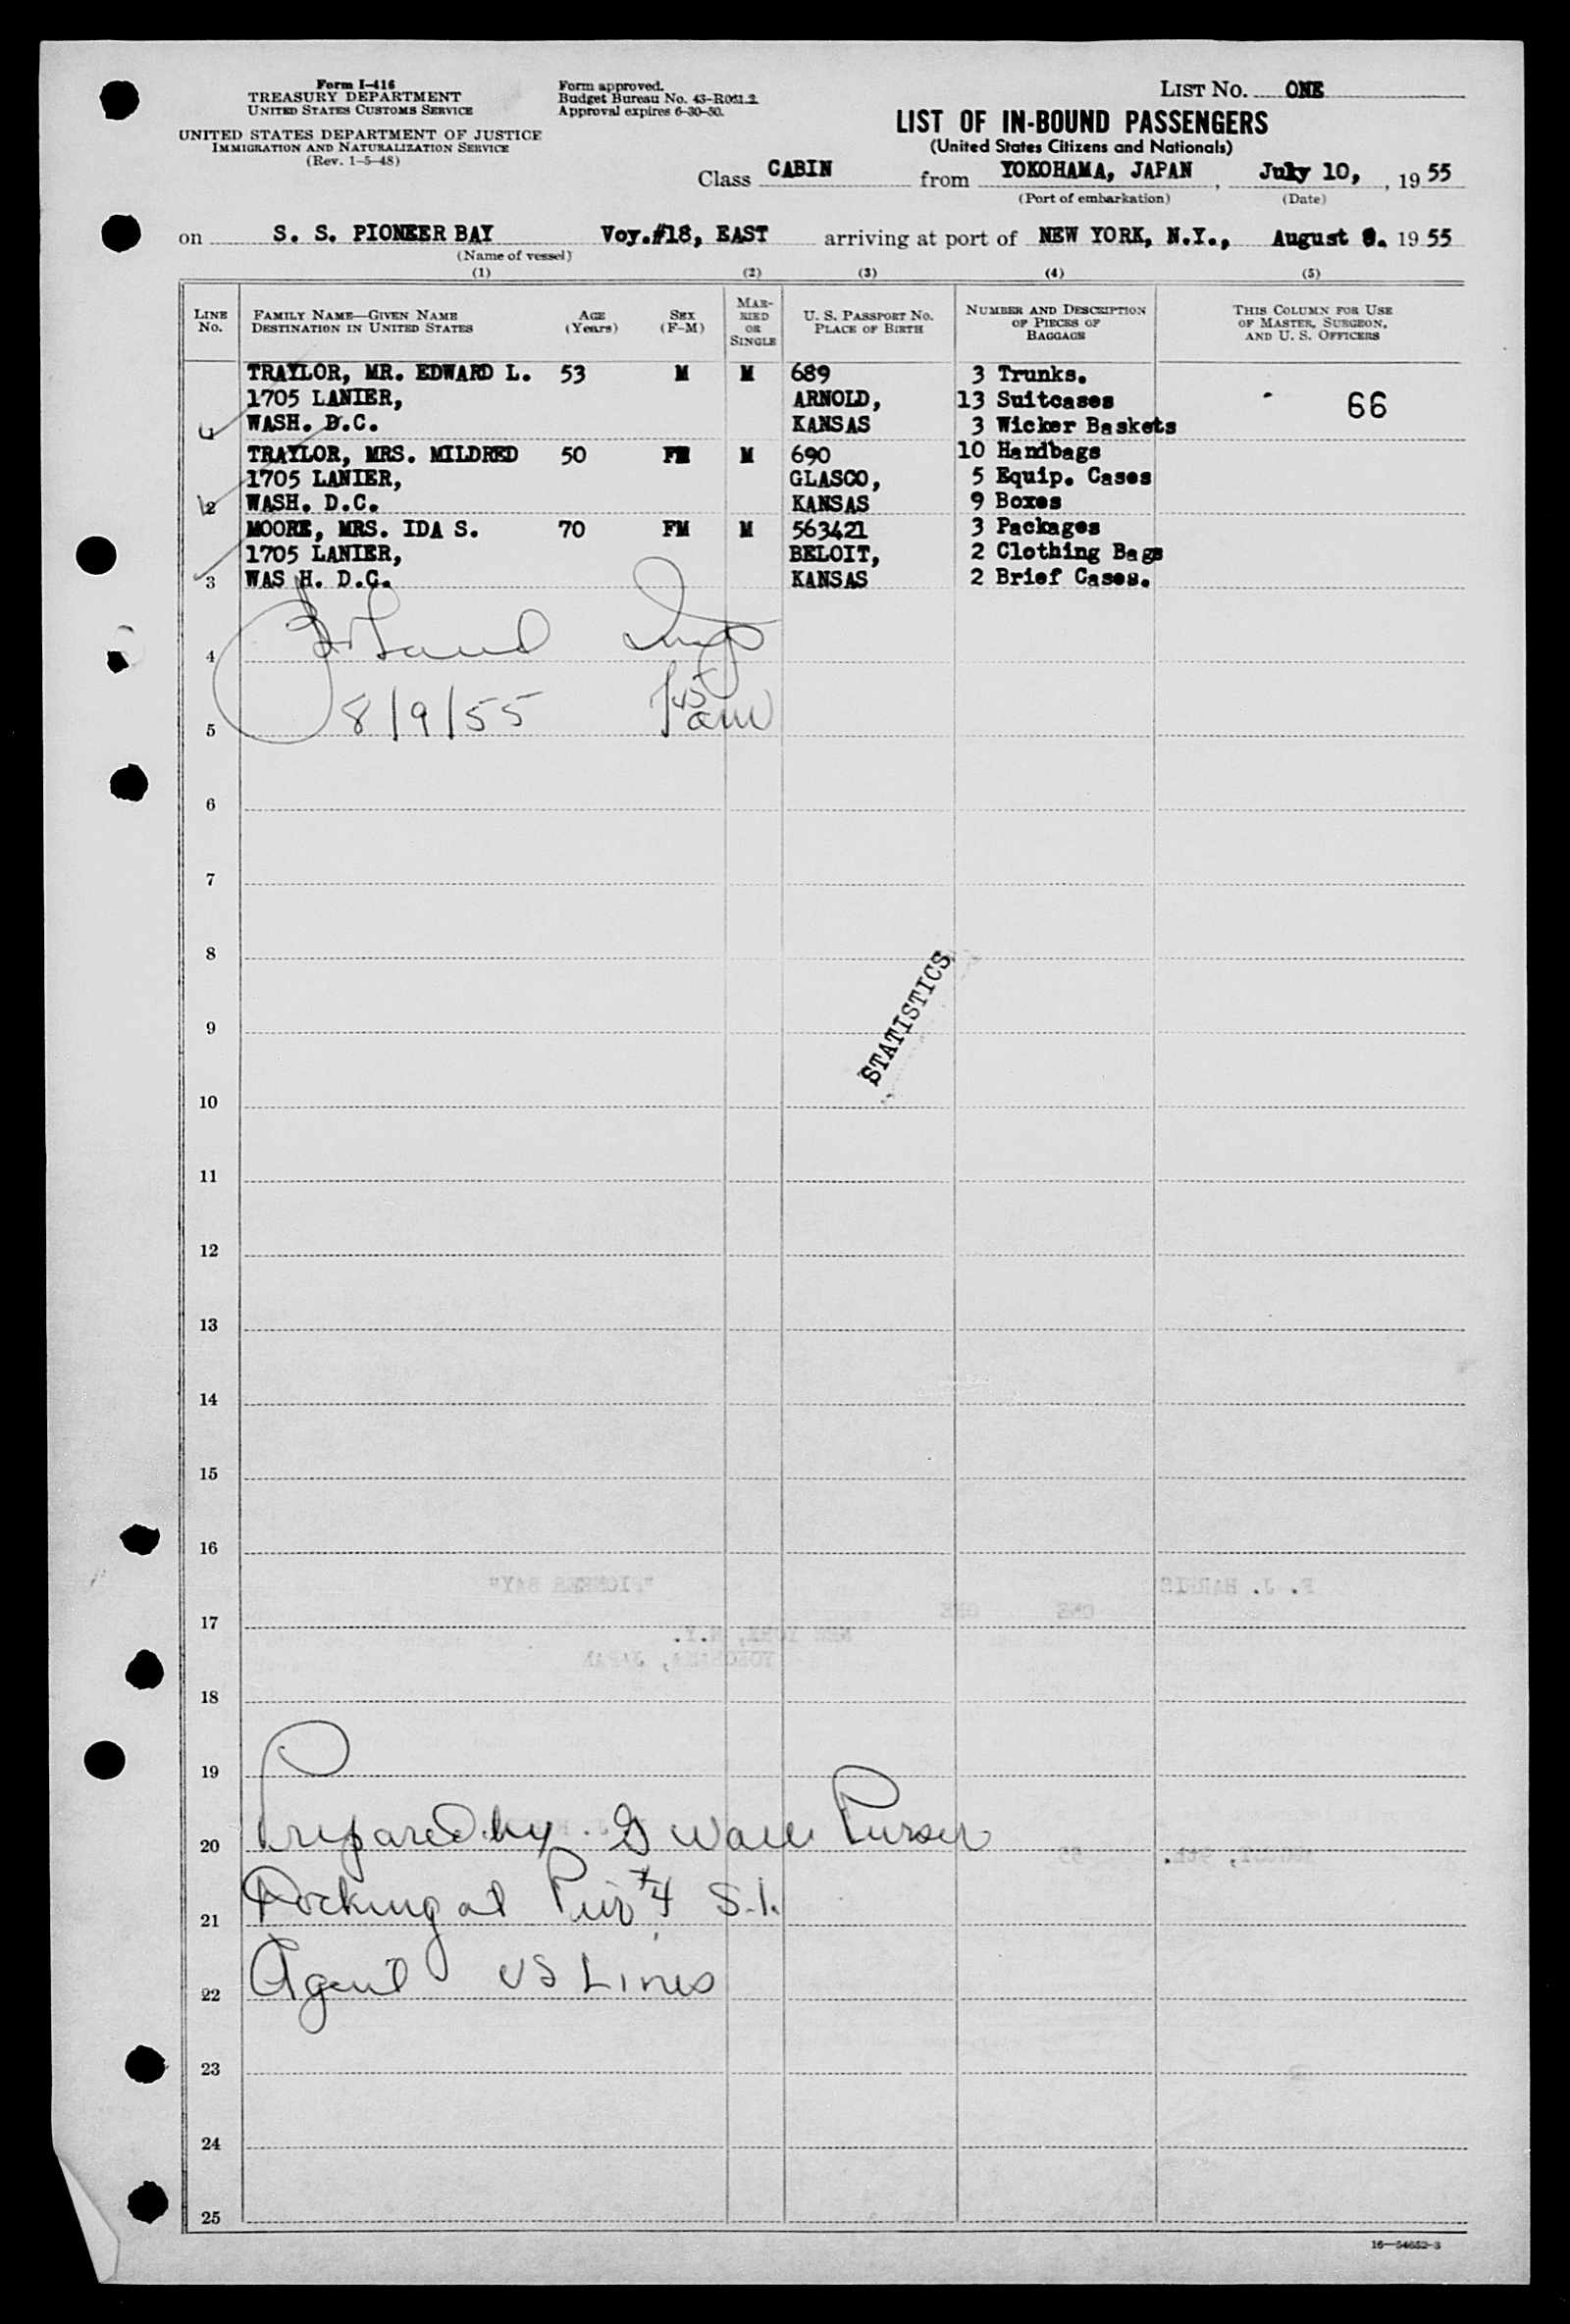 Form I-416
TREASURY DEPARTMENT
UNITED STATES CUSTOMS SERVICE
UNITED STATES DEPARTMENT OF JUSTICE
IMMIGRATION AND NATURALIZATION SERVICE
(Rev. 1-5-48)
Form approved.
Budget Bureau No. 43-R051.2
Approval expires 6-30-50.
LIST NO. ONE
LIST OF IN-BOUND PASSENGERS
(United States Citizens and Nationals)
Class CABIN from YOKOHAMA, JAPAN, July 10, , 19 55
(Port of embarkation) (Date)
on S. S. PIONEER BAY Voy.#18, EAST arriving at port of NEW YORK, N.Y., August 9. 19 55
(Name of vessel)
(1) (2) (3) (4) (5)
LINE NO. FAMILY NAME—GIVEN NAME DESTINATION IN UNITED STATES AGE (Years) SEX (F-M) MARRIED OR SINGLE U. S. PASSPORT NO. PLACE OF BIRTH NUMBER AND DESCRIPTION OF PIECES OF BAGGAGE THIS COLUMN FOR USE OF MASTER, SURGEON, AND U. S. OFFICERS
TRAYLOR, MR. EDWARD L. 53 M M 689 3 Trunks.
1705 LANIER, ARNOLD, 13 Suitcases 66
WASH. D.C. KANSAS 3 Wicker Baskets
TRAYLOR, MRS. MILDRED 50 FM M 690 10 Handbags
1705 LANIER, GLASCO, 5 Equip. Cases
2 WASH. D.C. KANSAS 9 Boxes
MOORE, MRS. IDA S. 70 FM M 563421 3 Packages
1705 LANIER, BELOIT, 2 Clothing Bags
3 WAS H. D.C. KANSAS 2 Brief Cases.
4
8/9/55 am
5
6
7
8
STATISTICS
9
10
11
12
13
14
15
16
"PIONEER BAY" F. J. HARRIS
ONE ONE
17
NEW YORK, N.Y.
YOKOHAMA, JAPAN
18
19
20 Prepared by G Wall Purser
21 Docking at Pier #4 S.I.
22 Agent US Lines
23
24
25
16—54652-3